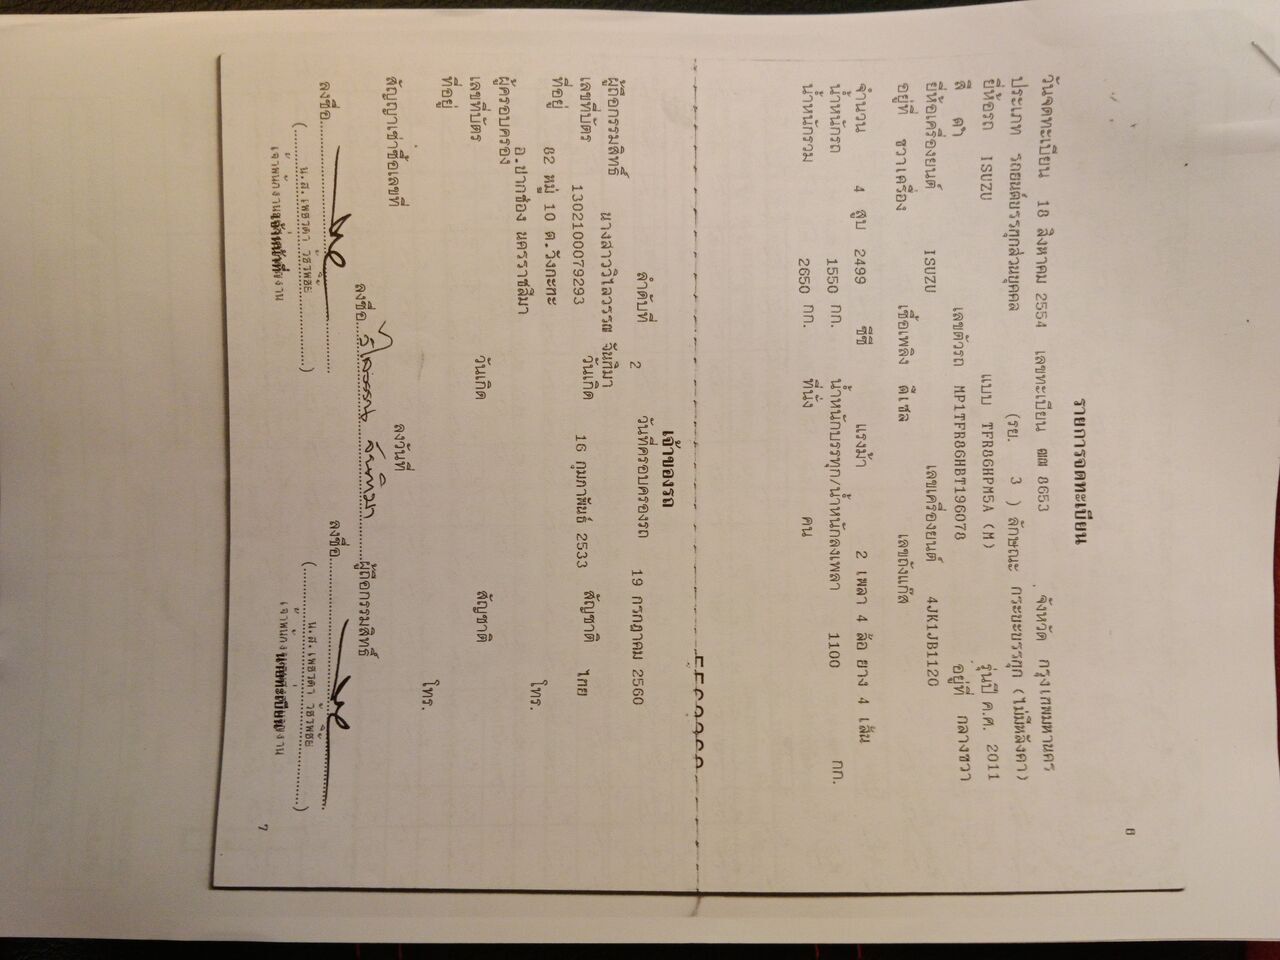 6
รายการจดทะเบียน
วันจดทะเบียน 18 สิงหาคม 2554 เลขทะเบียน ฒฒ 8653 จังหวัด กรุงเทพมหานคร
ประเภท รถยนต์บรรทุกส่วนบุคคล (รย. 3 ) ลักษณะ กระบะบรรทุก (ไม่มีหลังคา)
ยี่ห้อรถ ISUZU แบบ TFR86HPM5A (M) รุ่นปี ค.ศ. 2011
สี ดำ เลขตัวรถ MP1TFR86HBT196078 อยู่ที่ กลางขวา
ยี่ห้อเครื่องยนต์ ISUZU เลขเครื่องยนต์ 4JK1JB1120
อยู่ที่ ขวาเครื่อง เชื้อเพลิง ดีเซล เลขถังแก๊ส
จำนวน 4 สูบ 2499 ซีซี แรงม้า 2 เพลา 4 ล้อ ยาง 4 เส้น
น้ำหนักรถ 1550 กก. น้ำหนักบรรทุก/น้ำหนักลงเพลา 1100 กก.
น้ำหนักรวม 2650 กก. ที่นั่ง คน
เจ้าของรถ
ลำดับที่ 2 วันที่ครอบครองรถ 19 กรกฎาคม 2560
ผู้ถือกรรมสิทธิ์ นางสาววิไลวรรณ จันทิมา
เลขที่บัตร 1302100079293 วันเกิด 16 กุมภาพันธ์ 2533 สัญชาติ ไทย
ที่อยู่ 82 หมู่ 10 ต.วังกะทะ
อ.ปากช่อง นครราชสีมา โทร.
ผู้ครอบครอง
เลขที่บัตร วันเกิด สัญชาติ
ที่อยู่
โทร.
สัญญาเช่าซื้อเลขที่ ลงวันที่
ลงชื่อ วิไลวรรณ จันทิมา ผู้ถือกรรมสิทธิ์
ลงชื่อ ลงชื่อ
7